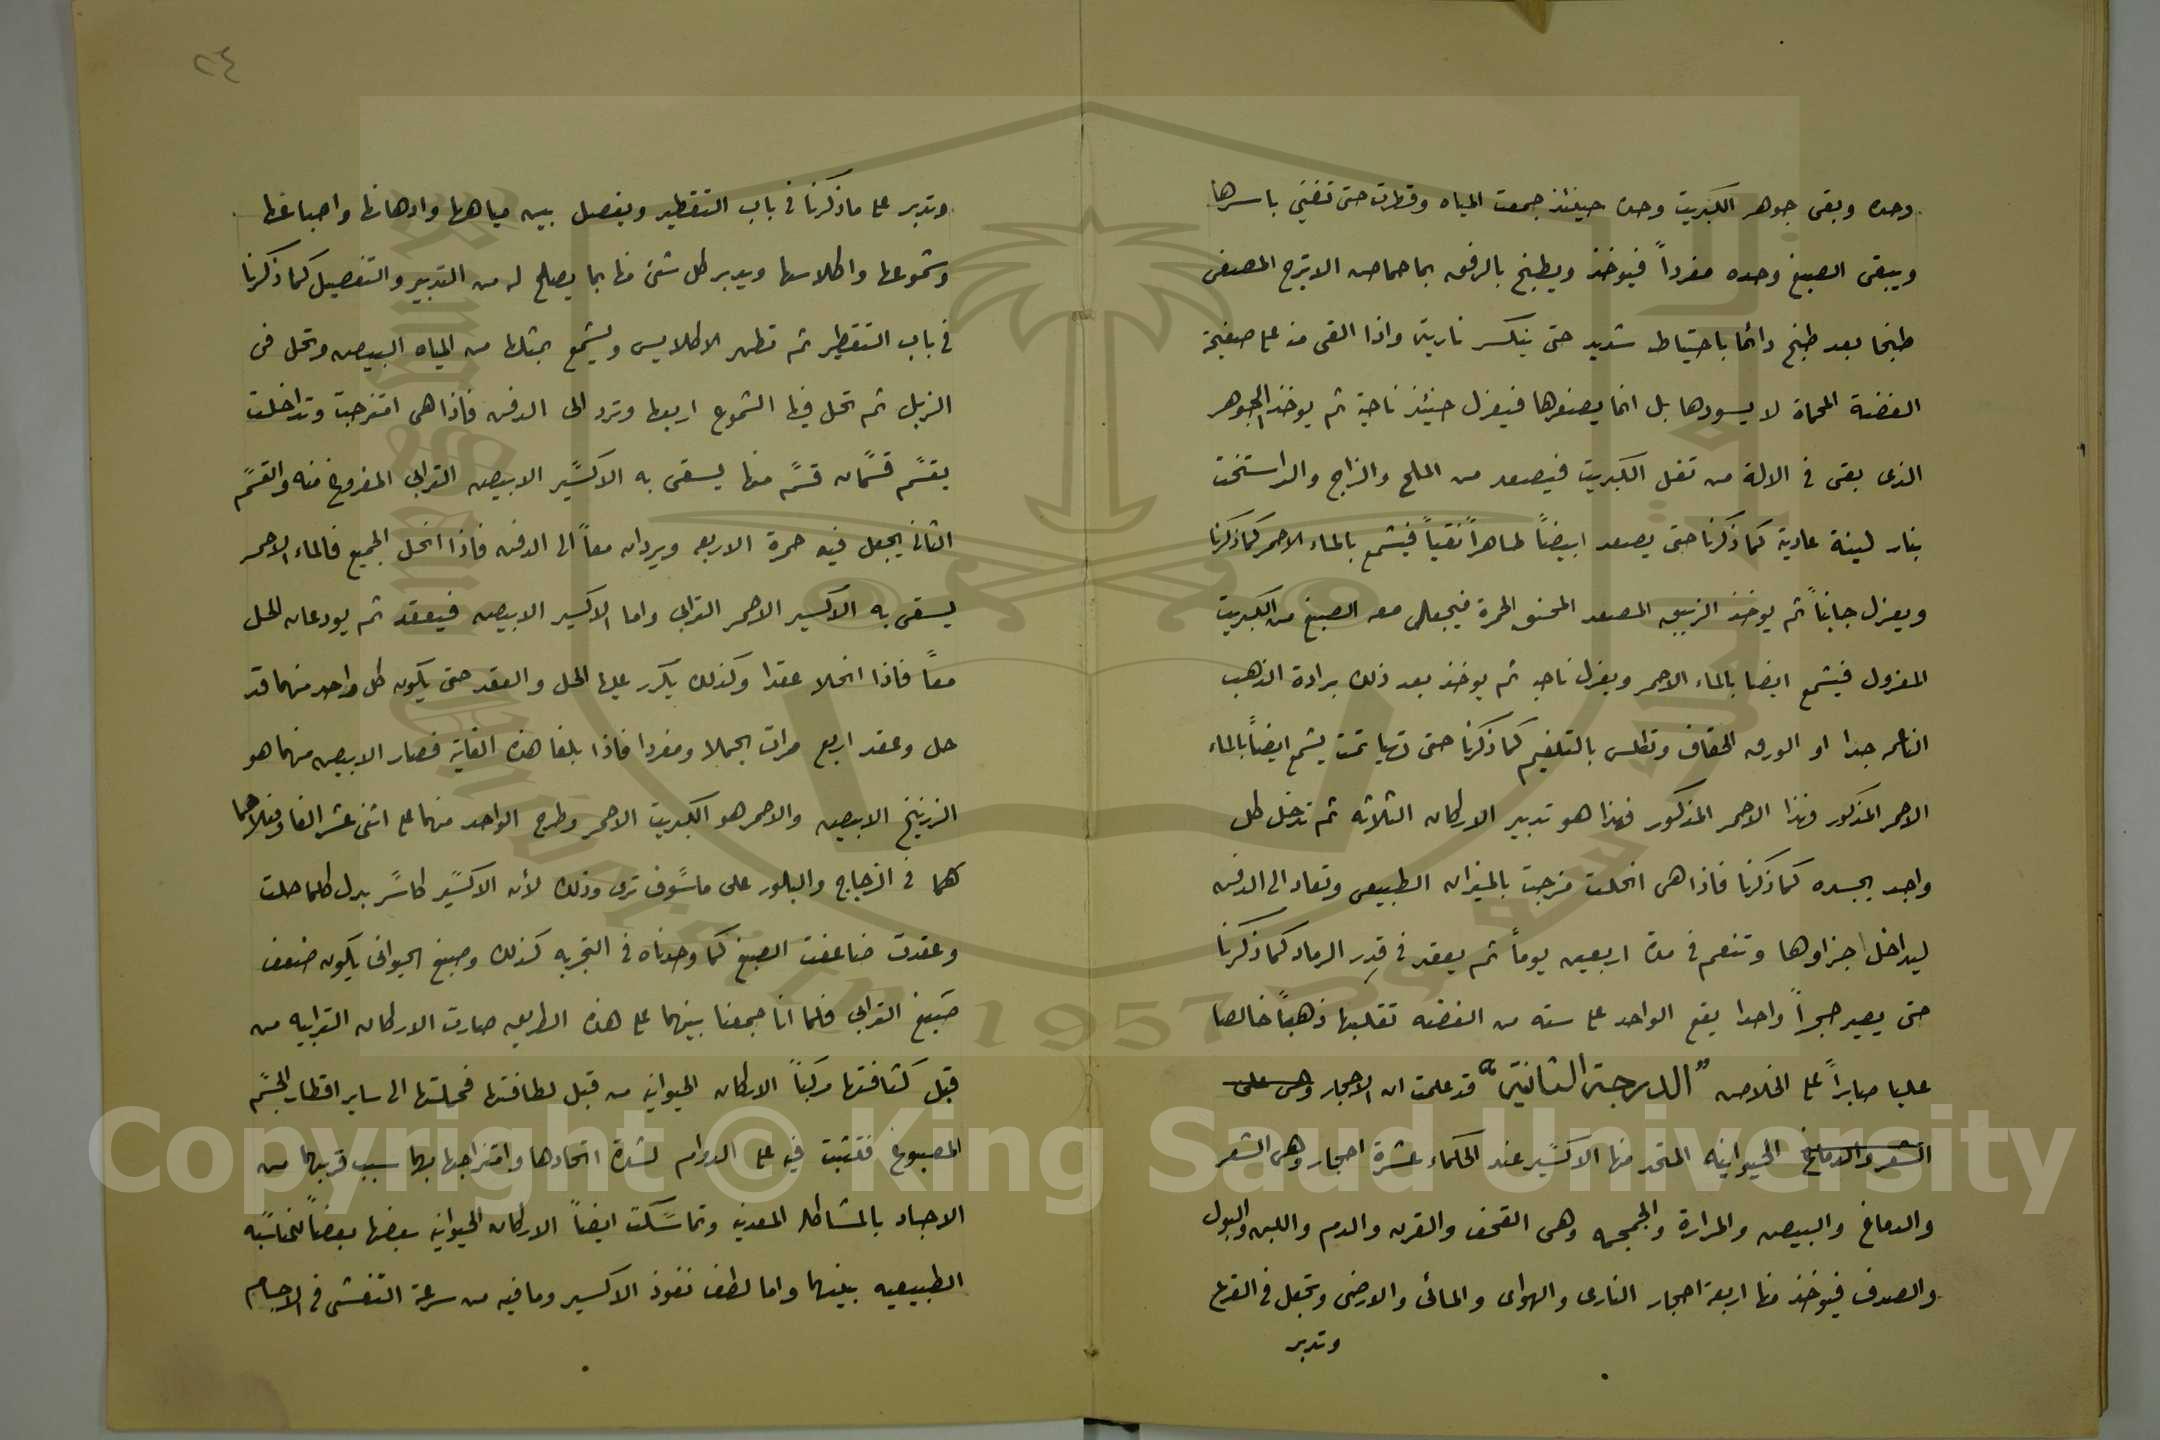 وحده وبقى جوهر الكبريت وحده حينئذ جمعت المياه وقطرت حتى تفنى باسرها
ويبقى الصبغ وحده مفرداً فيوخذ ويطبخ بالرفق بماحماض الاترج المصفى
طبخا بعد طبخ دائما باحتياط شديد حتى ينكسر ناريته واذا القى منه على صفيحة
الفضة المحماة لا يسودها بل انما يصفرها فيعزل حينئذ ناحية ثم يوخذ الجوهر
الذى بقى فى الالة من تفل الكبريت فيصعد من الملح والزاج والراسخت
بنار لينة عادية كما ذكرنا حتى يصعد ابيضاً طاهراً نقياً فيشمع بالماء الاحمر كما ذكرنا
ويعزل جانباً ثم يوخذ الزيبق المصعد المحنو الحمرة فيجعل معه الصبغ من الكبريت
المعزول فيشمع ايضا بالماء الاحمر ويعزل ناحيه ثم يوخذ بعد ذلك برادة الذهب
الناعمه جدا او الورق الخفاف وتكلس بالتلغيم كما ذكرنا حتى تهيا تمت يشمع ايضاً بالماء
الاحمر المذكور فهذا الاحمر المذكور فهذا هو تدبير الاركان الثلاثه ثم تدخل كل
واحد بجسده كما ذكرنا فاذا هى انحلت مزجت بالميزان الطبيعى وتعاد الى الدفن
ليداخل اجزاوها وتنعم فى مدة اربعين يوماً ثم يعقد فى قِدِر الرماد كما ذكرنا
حتى يصير حجراً واحدا يقع الواحد على سته من الفضه تقلبها ذهباً خالصا
عليا صابراً على الخلاص "الدرجة الثانية" قد علمت ان الاحجار وهى على
الشعر والدماغ الحيوانيه المتخذ منها الاكسير عند الحكماء عشرة احجار وهى الشعر
والدماغ والبيض والمرارة والجمجمه وهى القحف والقرن والدم واللبن والبول
والصدف فيوخذ منها اربعة احجار النارى والهواى والمائى والارضى وتجعل فى القرع
وتدبر
٢٤
وتدبر على ما ذكرنا فى باب التقطير ويفصل بين مياهها وادهانها واصباغها
وشموعها واكلاسها ويدبر كل شئ منها بما يصلح له من التدبير والتفصيل كما ذكرنا
فى باب التقطير ثم تطهر الاكلاس وليشمع بمثلها من المياه البيض وتحل فى
الزبل ثم تحل فيها الشموع اربعها وترد الى الدفن فاذا هى امتزجت وتداخلت
يقسم قسمان قسم منها ليسقى به الاكسير الابيض الترابى المفروغ منه والقسم
الثانى يجعل فيه حمرة الاربعه ويردان معاً الى الدفن فاذا انحل الجميع فالماء الاحمر
يسقى به الاكسير الاحمر الترابى واما الاكسير الابيض فيعقد ثم يودعان للحل
معاً فاذا انحلا عقدا وكذلك يكرر عليها الحل والعقد حتى يكون كل واحد منهما قد
حل وعقد اربع مرات مفردا فاذا بلغا هذه الغاية فصار الابيض منهما هو
الزرنيخ الابيض والاحمر هو الكبريت الاحمر وطرح الواحد منهما على اثنى عشر الفا
كهما فى الزجاج والبلور على ما سوف ترى وذلك لأن الاكسير كلما حلت
وعقدت ضاعفت الصبغ كما وجدناه فى التجربه كذلك وصبغ الحيوانى يكون ضعف
صبغ الترابى فلما انا جمعنا بينهما على هذه الطريقه صارت الاركان الترابيه من
قبل كثافتها مركباً الاركان الحيوانيه من قبل لطافتها فحملتها الى ساير اقطار الجسم
المصبوغ فتثبت فيه على الدوام لشدة اتحادها وامتزاجها بها سبب قربهما من
الاجساد بالمشاكله المعدنيه وتماسكت ايضاً الاركان الحيوانيه بعضها بعضاً
الطبيعيه بينهما واما لطف نفوذ الاكسير وما فيه من سرعة التفشى فى الاجسام
Copyright © King Saud University
1957